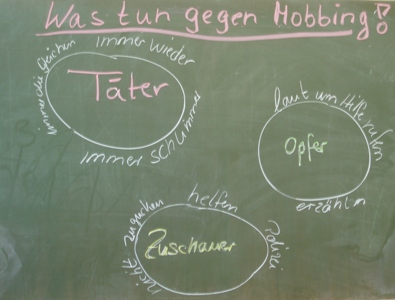 Was tun gegen Mobbing?!
immer die Gleichen
immer wieder
immer schlimmer
Täter
laut um Hilfe rufen
Opfer
erzähln
nicht zugucken
helfen
Polizei
Zuschauer